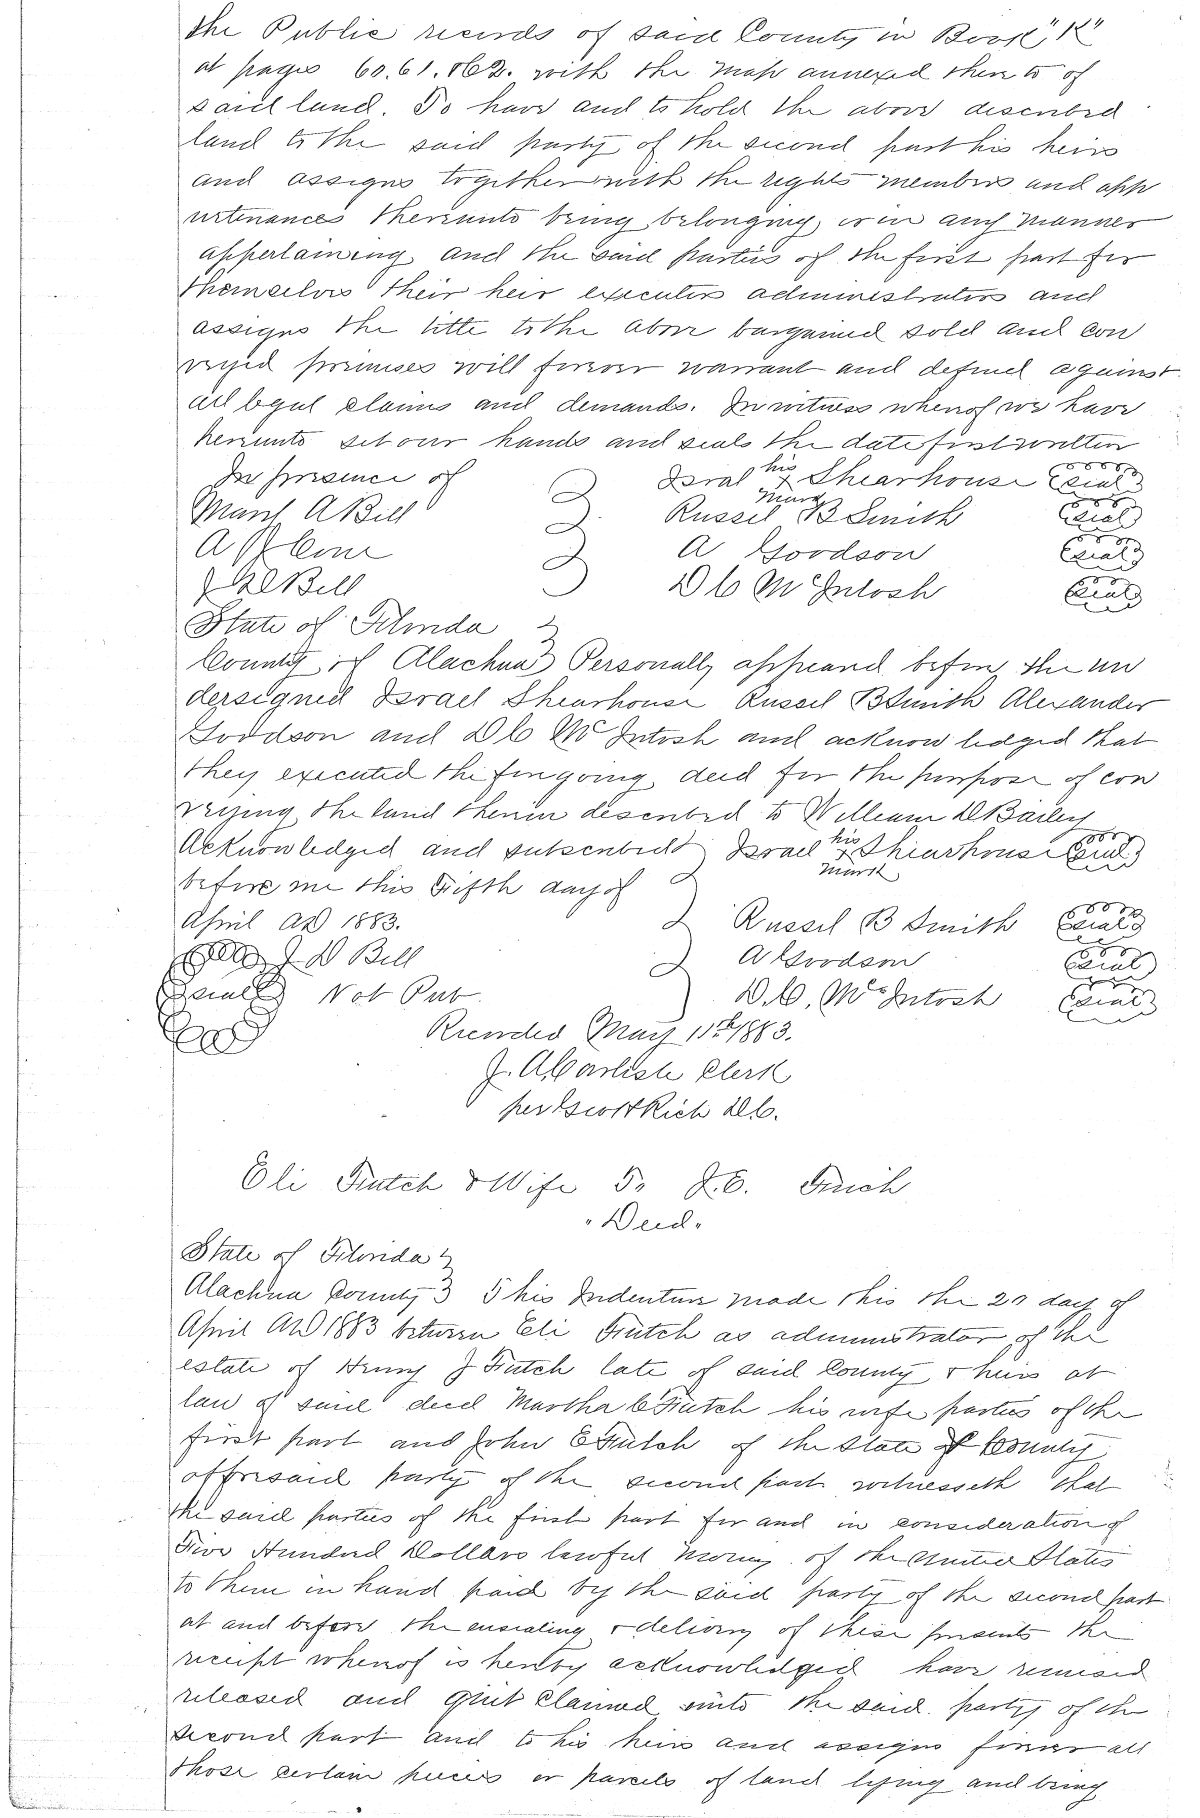 the Public records of said County in Book "K"
at pages 60.61.&62. with the Map annexed thereto of
said land. To have and to hold the above described
land to the said party of the second part his heirs
and assigns together with the rights members and app
urtenances thereunto being belonging or in any manner
appertaining and the said parties of the first part for
themselves their heirs executors administrators and
assigns the title to the above bargained sold and con
veyed premises will forever warrant and defend against
all legal claims and demands. In witness whereof we have
hereunto set our hands and seals the date first written
In presence of Isral his x mark Shearhouse seal
Mary A Bell Russel B Smith seal
A A Goodson seal
J D Bell D C McIntosh seal
State of Florida
County of Alachua Personally appeared before the un
dersigned Israel Shearhouse Russel B Smith Alexander
Goodson and D C McIntosh and acknowledged that
they executed the foregoing deed for the purpose of con
veying the land therein described to William D Bailey
Acknowledged and subscribed Israel his x mark Shearhouse seal
before me this Fifth day of
April AD 1883. Russel B Smith seal
J D Bell A Goodson seal
seal Not Pub. D.C. McIntosh seal
Recorded May 11th 1883.
J. A. Carlisle Clerk
per Scott Rich D.C.
Eli Futch & Wife To J.E. Futch
"Deed"
State of Florida
Alachua County This Indenture made this the 27 day of
April AD 1883 between Eli Futch as administrator of the
estate of Henry J Futch late of said County & heirs at
law of said decd Martha C Futch his wife parties of the
first part and John E Futch of the State & County
afforesaid party of the second part witnesseth that
the said parties of the first part for and in consideration of
Five Hundred Dollars lawful money of the United States
to them in hand paid by the said party of the second part
at and before the ensealing & delivery of these presents the
receipt whereof is hereby acknowledged have remised
released and quit claimed unto the said party of the
second part and to his heirs and assigns forever all
those certain pieces or parcels of land lying and being